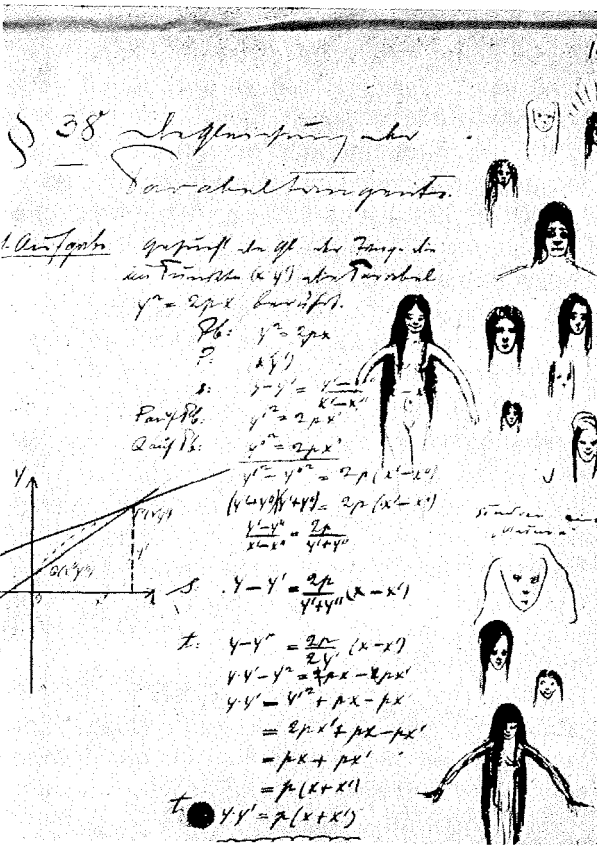 § 38 Die Gleichung der
Parabeltangente.
1. Aufgabe Gesucht die Gl. der Tang. die
im Punkte (x' y') der Parabel
y² = 2px berührt.
Pb: y² = 2px
P: (x'y')
s: y-y' = y'-y'' / x'-x''
P auf Pb: y'² = 2px'
Q auf Pb: y''² = 2px''
y'² - y''² = 2p(x'-x'')
(y'+y'')(y'-y'') = 2p(x'-x'')
y'-y'' / x'-x'' = 2p / y'+y''
Studien
y
x'
x
0
y'
s. y-y' = 2p / y'+y'' (x-x')
t: y-y' = 2p / 2y' (x-x')
y·y'-y'² = px - px'
y·y' = y'² + px - px'
= 2px' + px - px'
= px + px'
= p(x+x')
t y·y' = p(x+x')